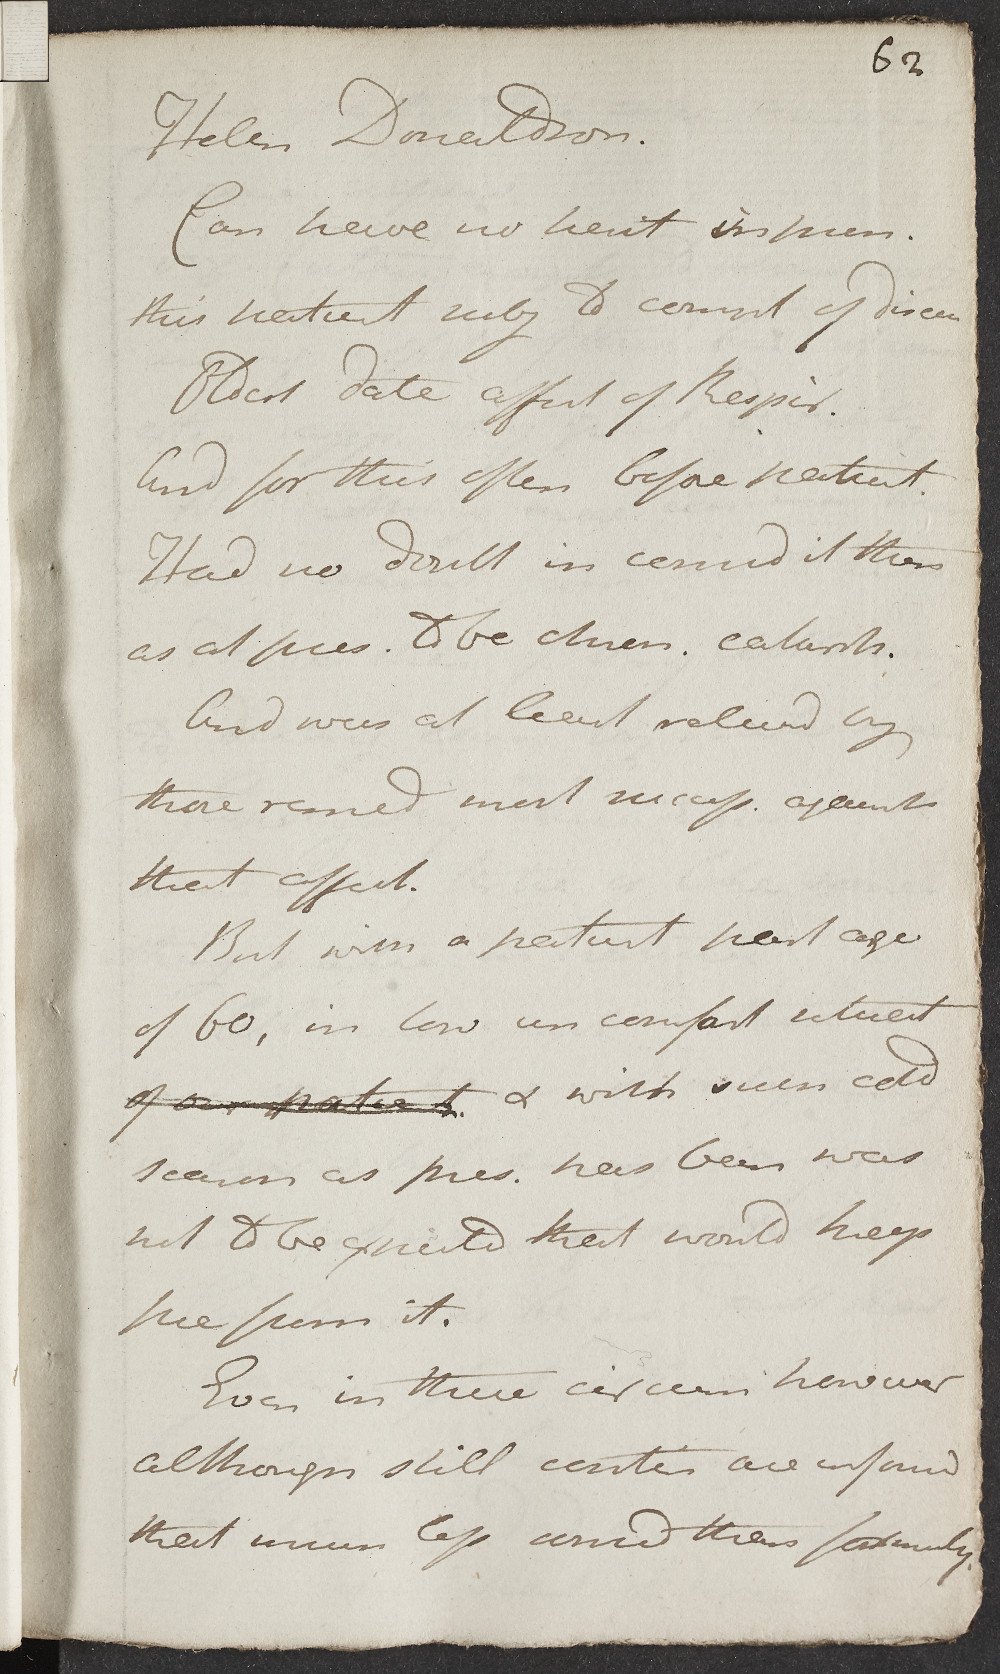 62
Helen Donaldson.
Can have no hesit in presen.
this patient subj to compl of disea
Oldest date affect of Respir.
And for this often before patient.
Had no doubt in consid it then
as at pres. to be chron. catarrh.
And was at least reliev'd by
those remed most success. against
that affect.
But with a patient past age
of 60, in low uncomfort situat
of our patient. & with such cold
season as pres. has been was
not to be expected that would keep
free from it.
Even in these circum however
although still contin are inform'd
that much less consid than formerly.